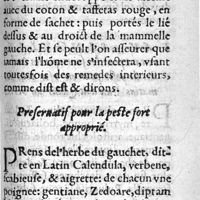 auec du coton & taffetas rouge, en
forme de sachet : puis portés le lié
dessus & au droict de la mammelle
gauche. Et se peult l'on asseurer que
iamais l'hõme ne s'infectera, vsant
toutesfois des remedes interieurs,
comme dist est & dirons.
Preseruatif pour la peste fort
approprié.
PRens de l'herbe du gauchet, dit-
te en Latin Calendula, verbene,
scabieuse, & aigrette: de chacun vne
poignee: gentiane, Zedoare, diptam